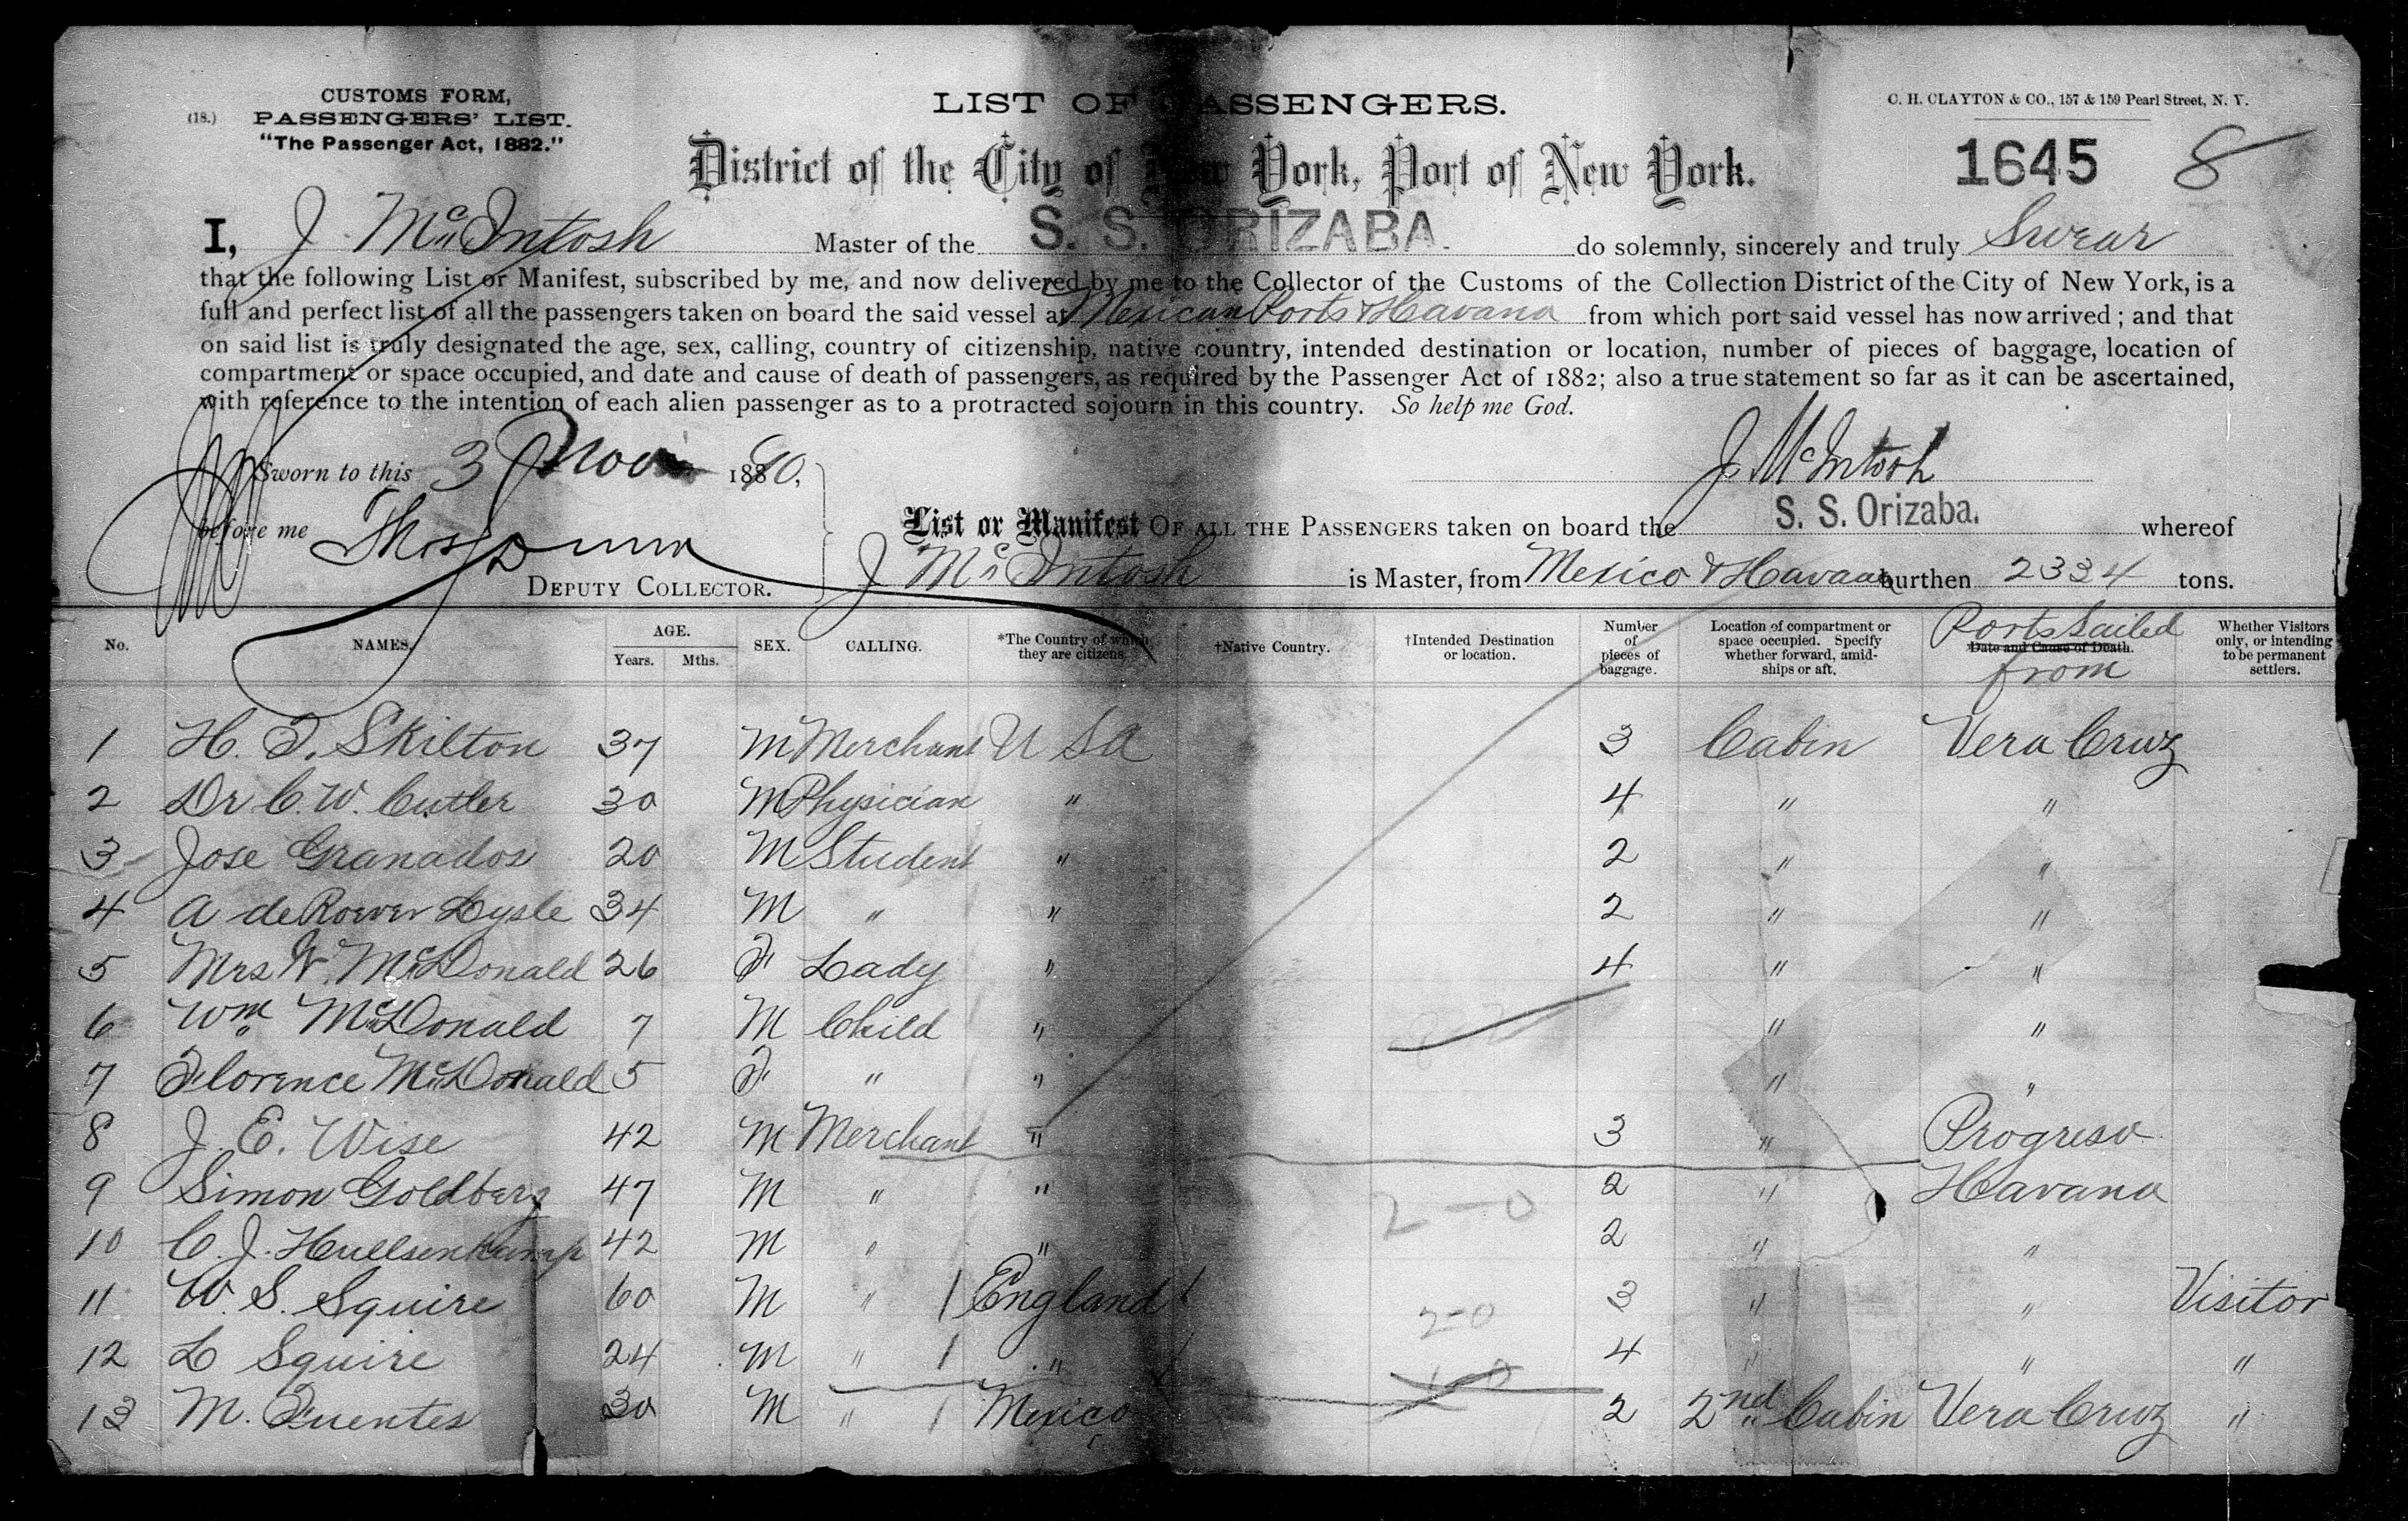 CUSTOMS FORM,
(18.) PASSENGERS' LIST.
"The Passenger Act, 1882."
LIST OF PASSENGERS.
C. H. CLAYTON & CO., 157 & 159 Pearl Street, N. Y.
District of the City of New York, Port of New York.
1645 8
I, J. McIntosh Master of the S. S. ORIZABA. do solemnly, sincerely and truly Swear
that the following List or Manifest, subscribed by me, and now delivered by me to the Collector of the Customs of the Collection District of the City of New York, is a
full and perfect list of all the passengers taken on board the said vessel at Mexican Ports & Havana from which port said vessel has now arrived; and that
on said list is truly designated the age, sex, calling, country of citizenship, native country, intended destination or location, number of pieces of baggage, location of
compartment or space occupied, and date and cause of death of passengers, as required by the Passenger Act of 1882; also a true statement so far as it can be ascertained,
with reference to the intention of each alien passenger as to a protracted sojourn in this country. So help me God.
Sworn to this 3 Nov 1890,
J. McIntosh
before me Thos
DEPUTY COLLECTOR.
List or Manifest OF ALL THE PASSENGERS taken on board the S. S. Orizaba. whereof
J McIntosh is Master, from Mexico & Havana burthen 2334 tons.
No. NAMES. AGE. Years. Mths. SEX. CALLING. *The Country of which they are citizens. †Native Country. †Intended Destination or location. Number of pieces of baggage. Location of compartment or space occupied. Specify whether forward, amidships or aft. Date and Cause of Death. Ports Sailed from Whether Visitors only, or intending to be permanent settlers.
1 H. F. Skilton 37 M Merchant U S A 3 Cabin Vera Cruz
2 Dr C. W. Cutler 30 M Physician " 4 " "
3 Jose Granados 20 M Student " 2 " "
4 A de Roever Lysle 34 M " " 2 " "
5 Mrs W. McDonald 26 F Lady " 4 " "
6 Wm McDonald 7 M Child " " "
7 Florence McDonald 5 F " " " "
8 J. E. Wise 42 M Merchant " 3 " Progreso
9 Simon Goldberg 47 M " " 2-0 2 " Havana
10 C. J. Huellsenkamp 42 M " " 2 " "
11 W. S. Squire 60 M " England 2-0 3 " " Visitor
12 L Squire 24 M " " 1-0 4 " " "
13 M. Fuentes 30 M " Mexico 2 2nd Cabin Vera Cruz "